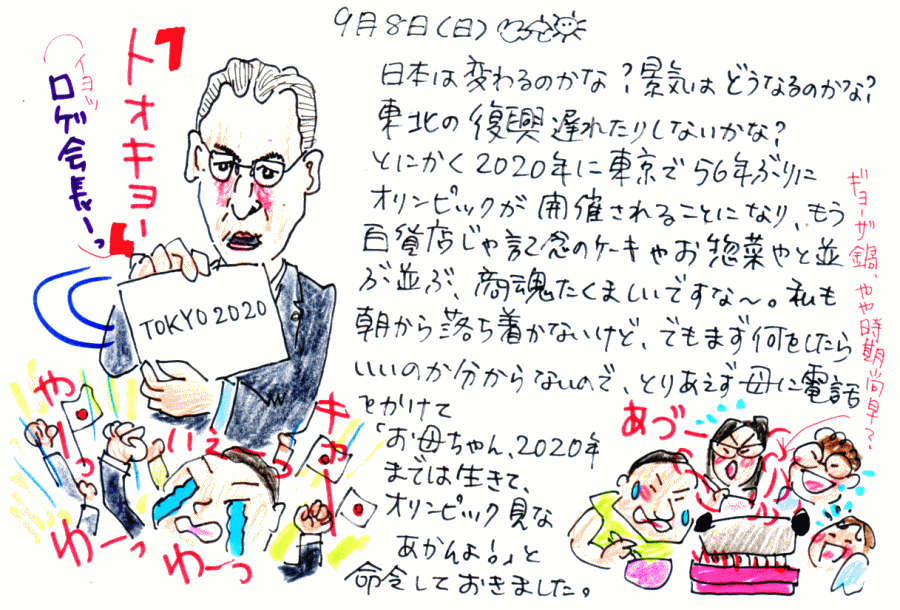 9月8日(日)
日本は変わるのかな?景気はどうなるのかな?
東北の復興遅れたりしないかな?
とにかく2020年に東京で56年ぶりに
オリンピックが開催されることになり、もう
百貨店じゃ記念のケーキやお惣菜やと並
ぶ並ぶ、商魂たくましいですな〜。私も
朝から落ち着かないけど、でもまず何をしたら
いいのか分からないので、とりあえず母に電話
をかけて
「お母ちゃん、2020年
までは生きて、
オリンピック見な
あかんよ!」と
命令しておきました。
「トォキョー」
イヨッ
ロゲ会長ーっ
TOKYO 2020
やーっ
いぇーっ
キャー
ゆーっ
ゆーっ
ギョーザ鍋、やや時期尚早?
あづー